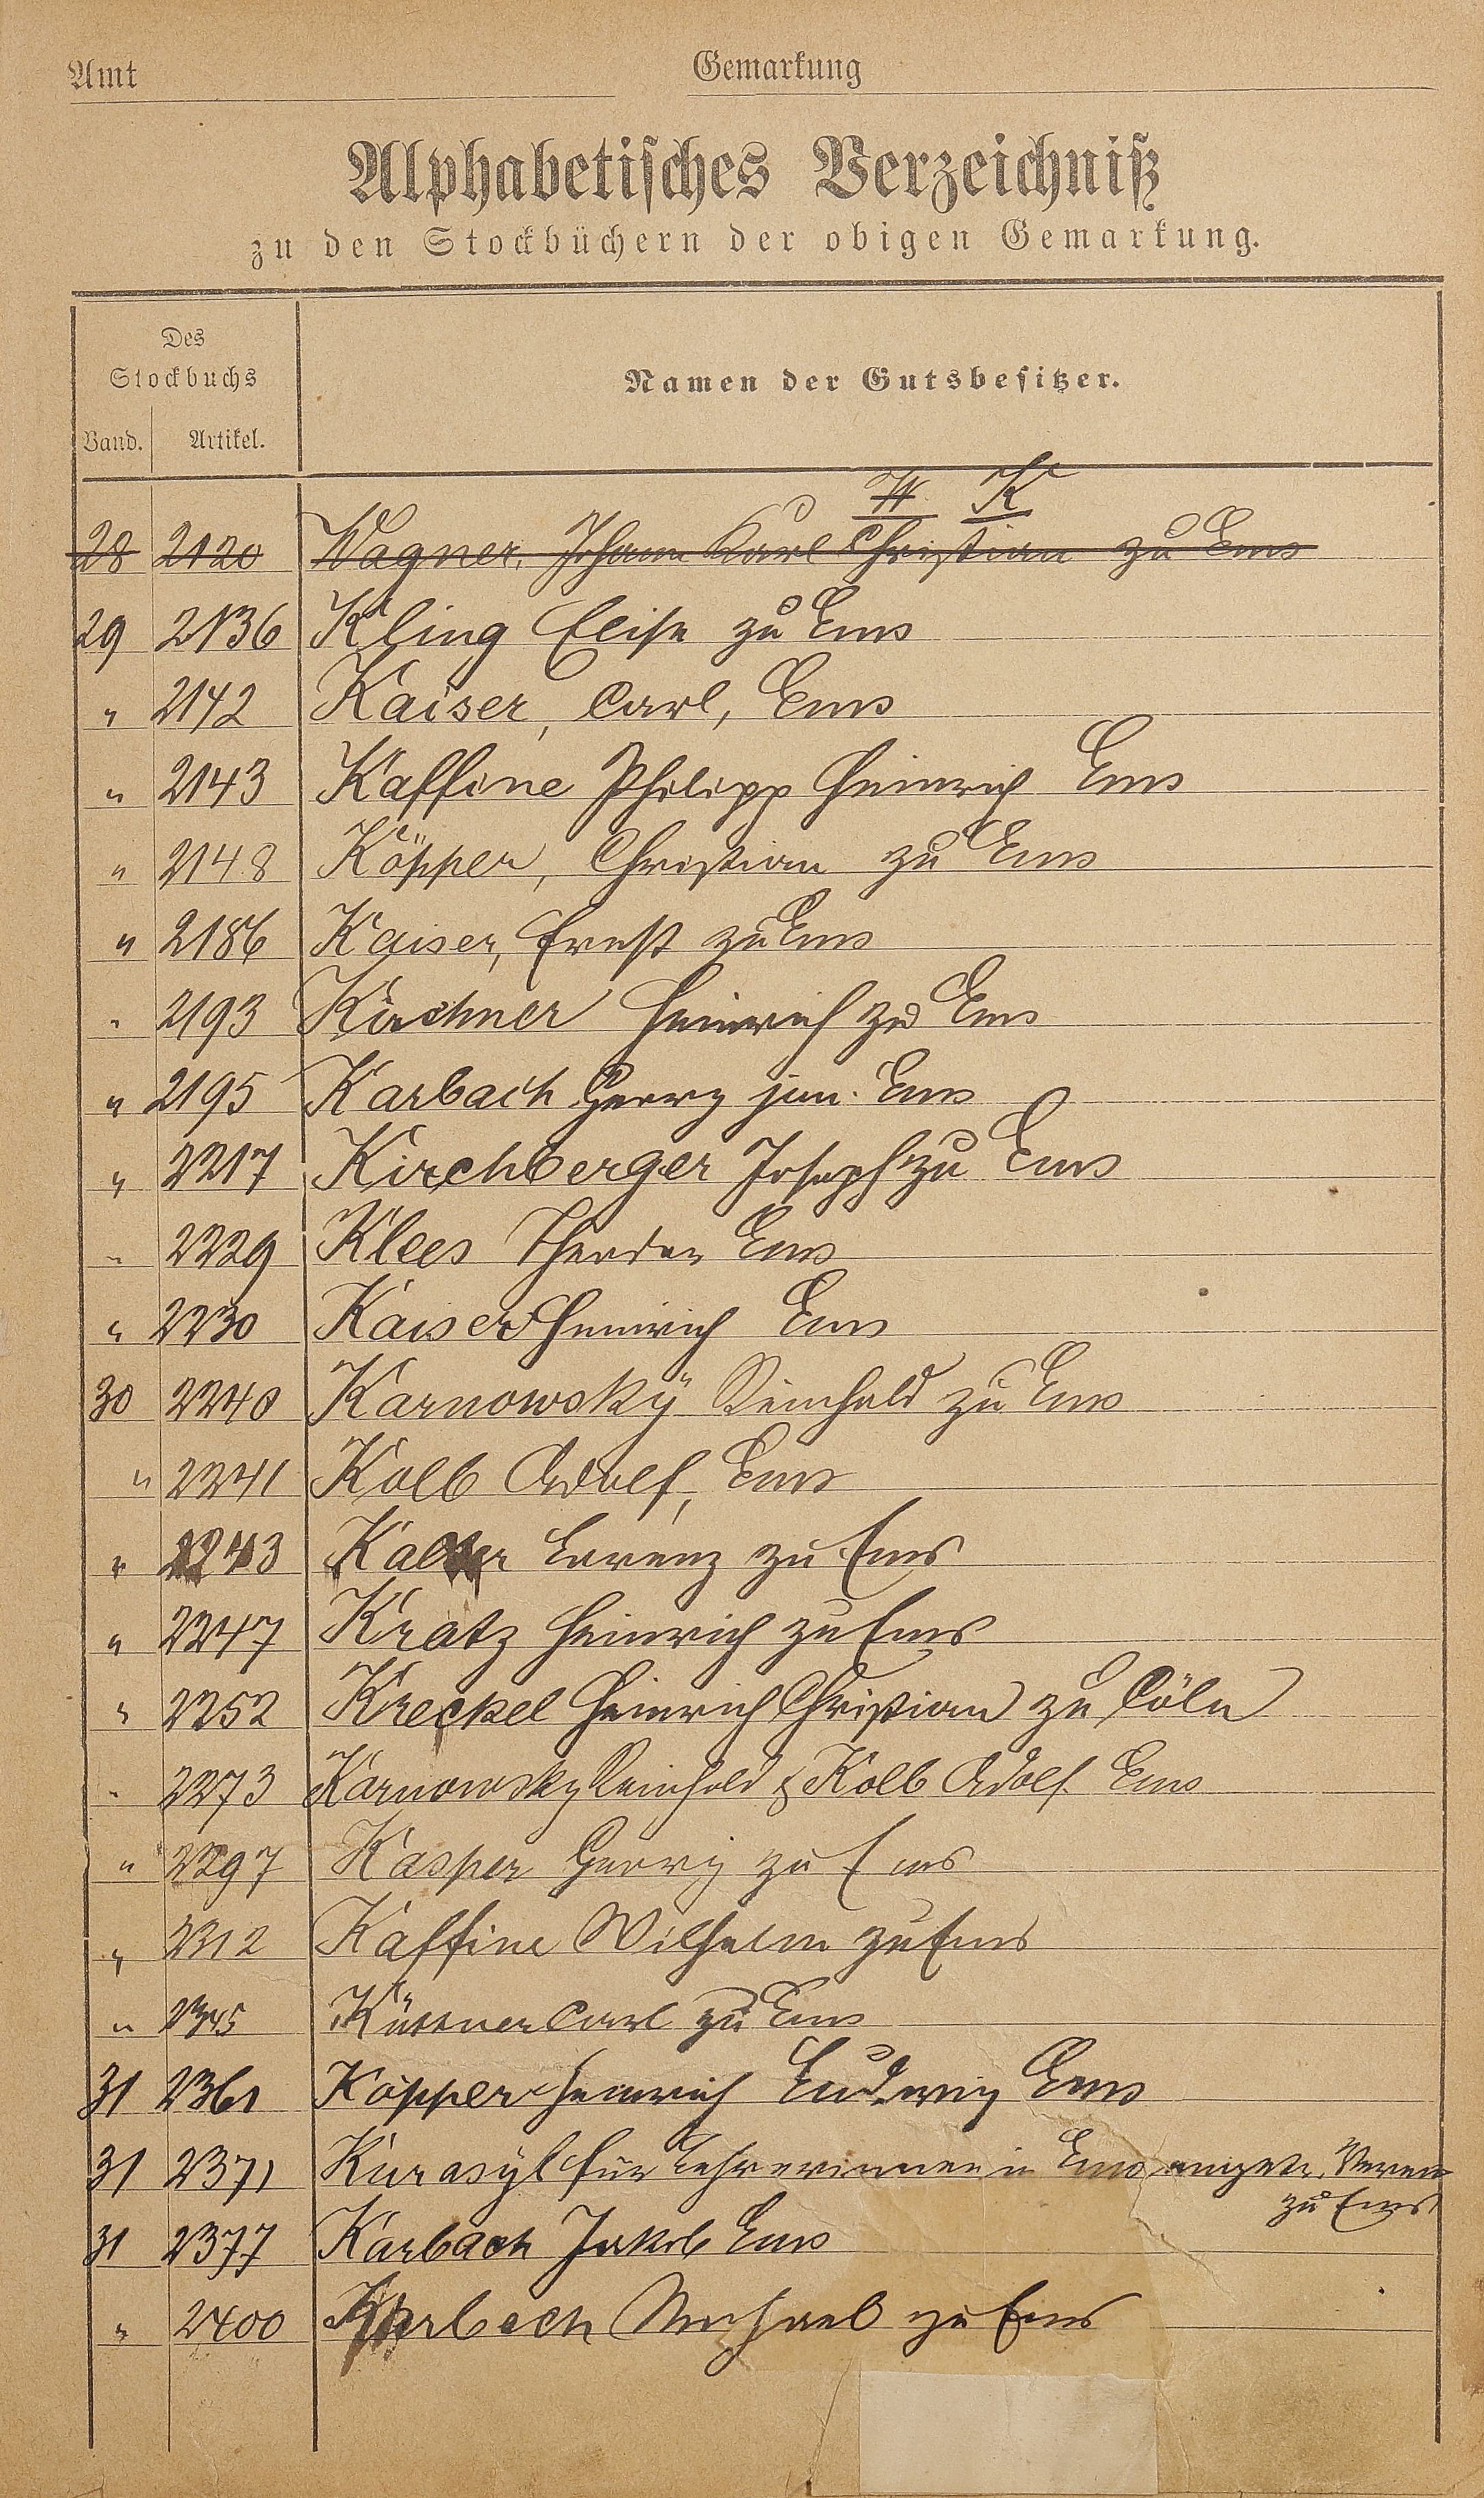 Amt Gemarkung
Alphabetisches Verzeichniß
zu den Stockbüchern der obigen Gemarkung.
Des
Stockbuchs
Namen der Gutsbesitzer.
Band. Artikel.
W K
28 2120 Wagner, Johann Karl Christian zu Ems
29 2136 Kling Elise zu Ems
" 2142 Kaiser, Carl, Ems
" 2143 Kaffine Philipp Heinrich Ems
" 2148 Köpper, Christian zu Ems
" 2186 Kaiser, Ernst zu Ems
" 2193 Kirchner Heinrich zu Ems
" 2195 Karbach Georg jun. Ems
" 2217 Kirchberger Joseph zu Ems
" 2229 Klees Theodor Ems
" 2230 Kaiser Heinrich Ems
30 2240 Karnowsky Reinhold zu Ems
" 2241 Kolb Adolf, Ems
" 2243 Lorenz zu Ems
" 2247 Kratz Heinrich zu Ems
" 2252 Kreckel Heinrich Christian zu Cöln
" 2273 Karnowsky Reinhold & Kolb Adolf Ems
" 2297 Kasper Georg zu Ems
" 2312 Kaffine Wilhelm zu Ems
" 2345 Küttner Carl zu Ems
31 2361 Köpper Heinrich Ludwig Ems
31 2371 Kurasyl für Lehrerinnen in Ems, eingetr. Verein
zu Ems
31 2377 Karbach Jakob Ems
" 2400 Karbach Michael zu Ems